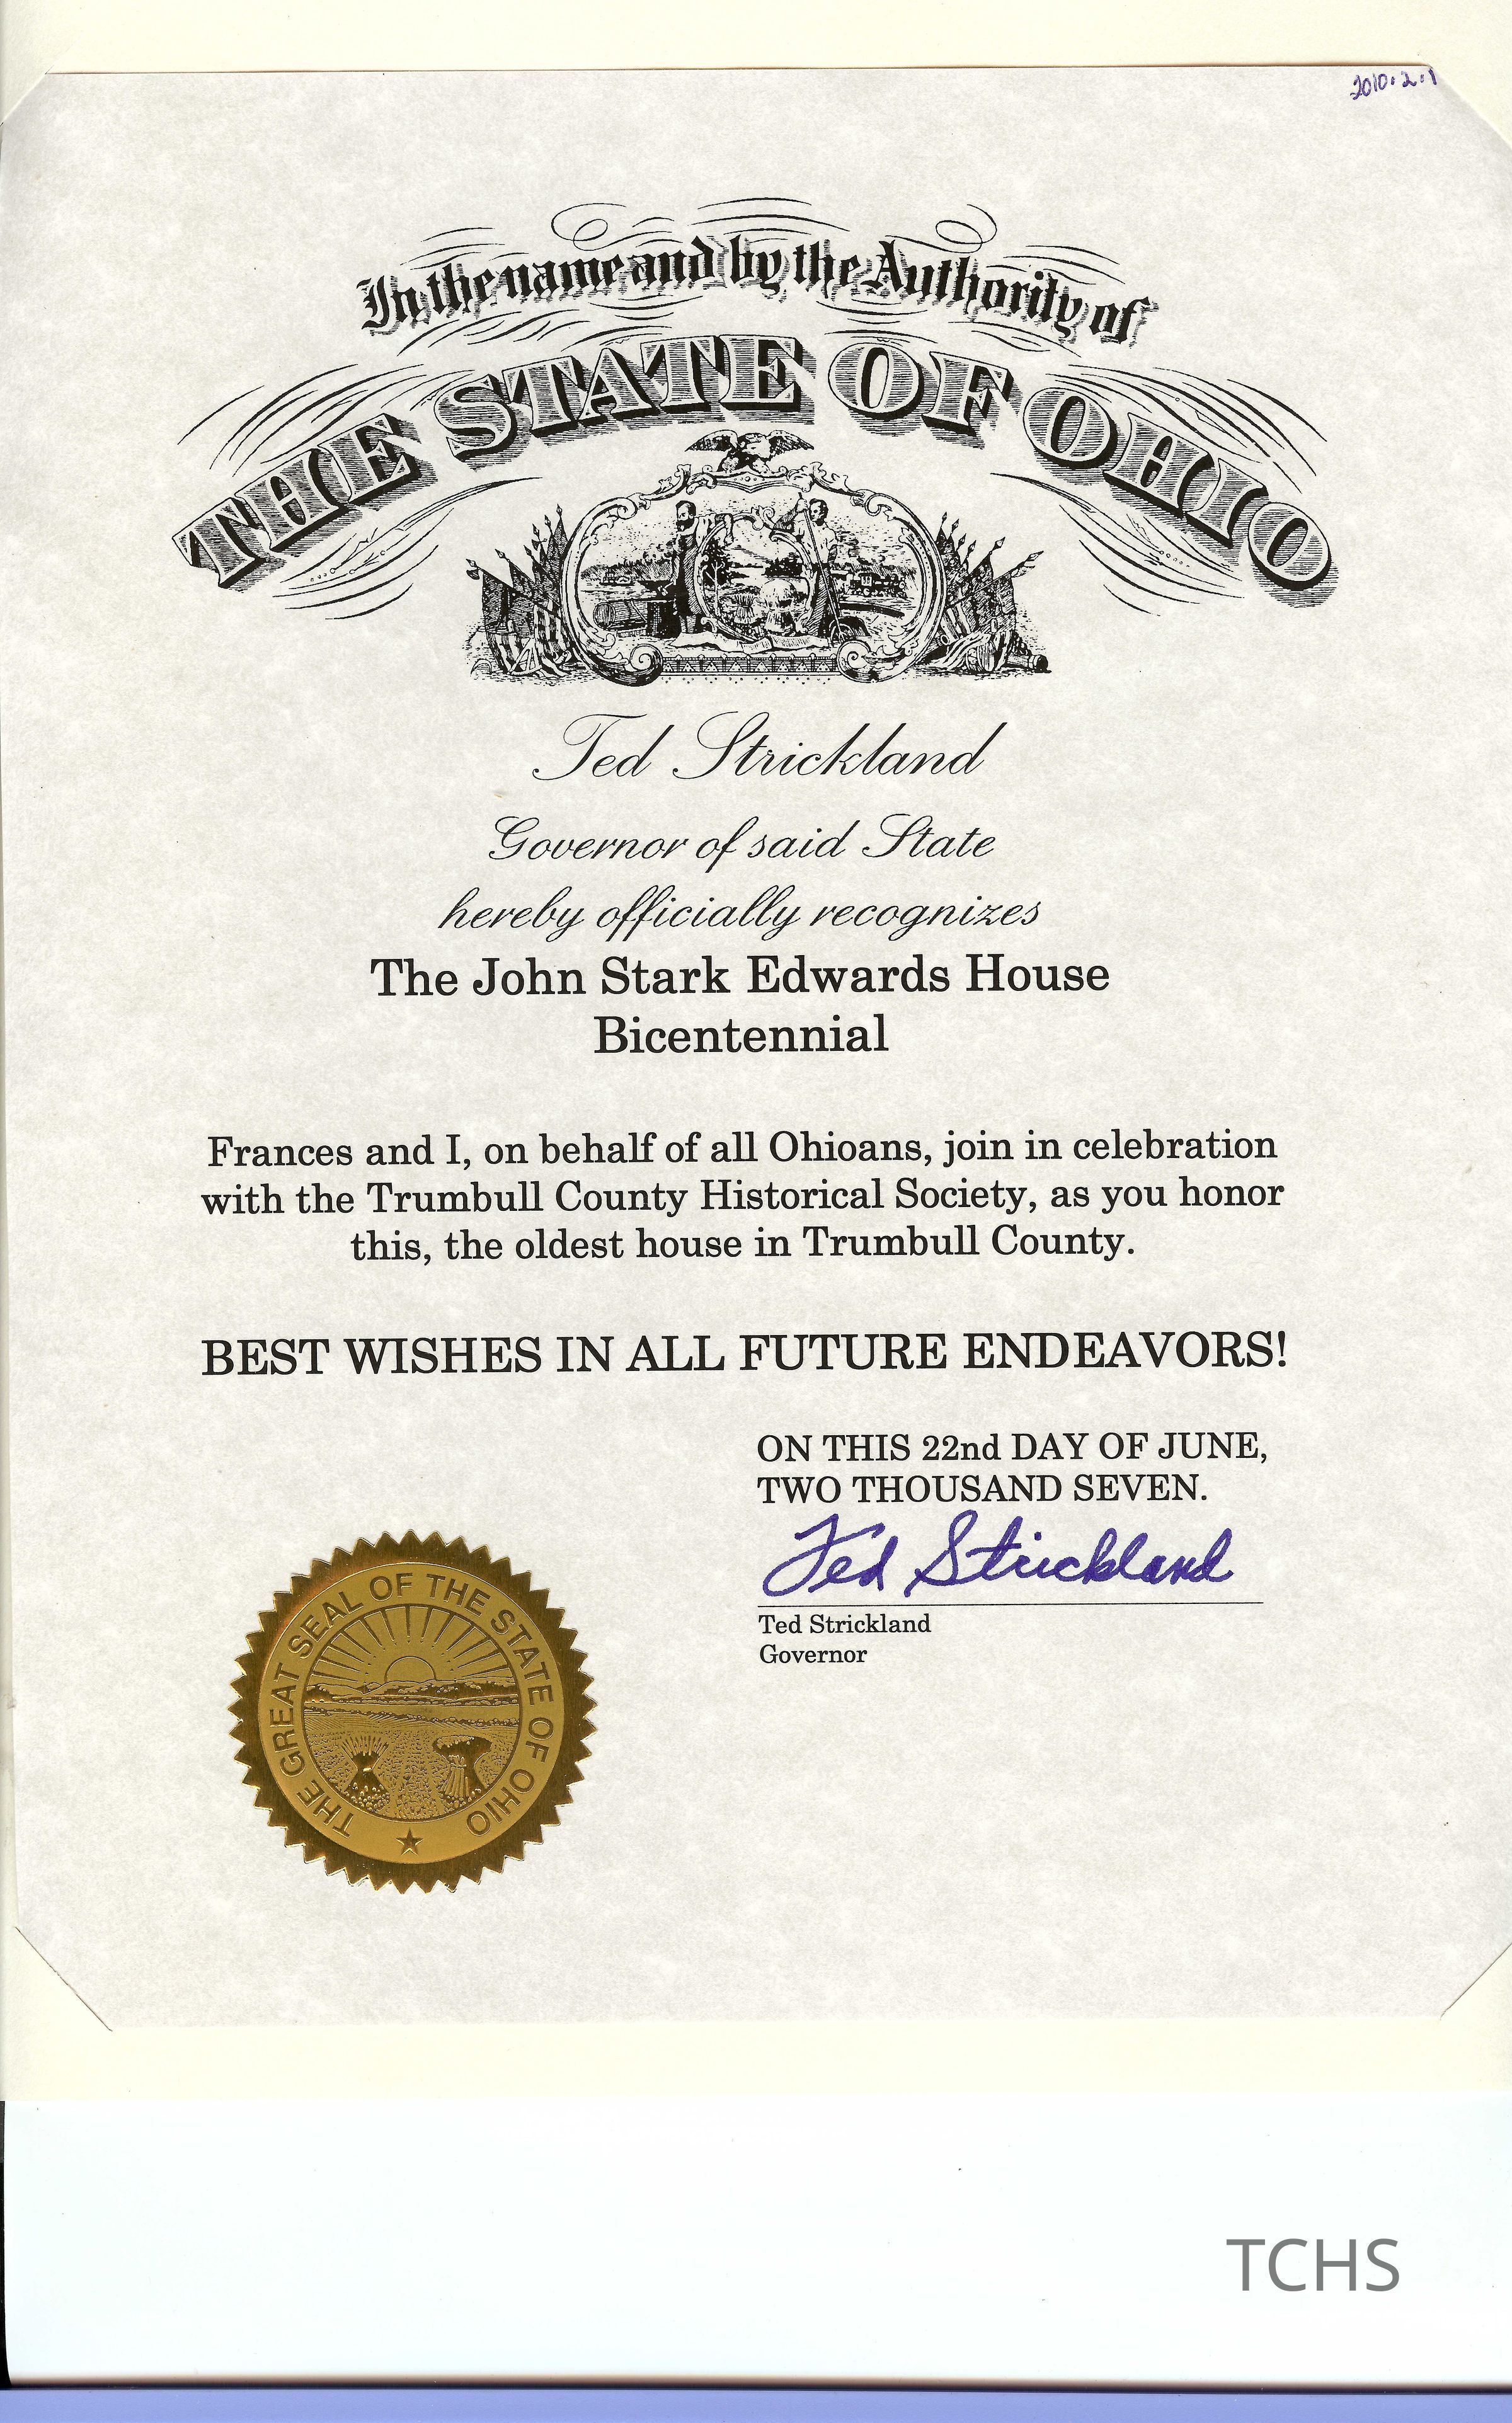 2010.2.1
In the name and by the Authority of
THE STATE OF OHIO
Ted Strickland
Governor of said State
hereby officially recognizes
The John Stark Edwards House
Bicentennial
Frances and I, on behalf of all Ohioans, join in celebration
with the Trumbull County Historical Society, as you honor
this, the oldest house in Trumbull County.
BEST WISHES IN ALL FUTURE ENDEAVORS!
ON THIS 22nd DAY OF JUNE,
TWO THOUSAND SEVEN.
Ted Strickland
Ted Strickland
Governor
THE GREAT SEAL OF THE STATE OF OHIO
TCHS